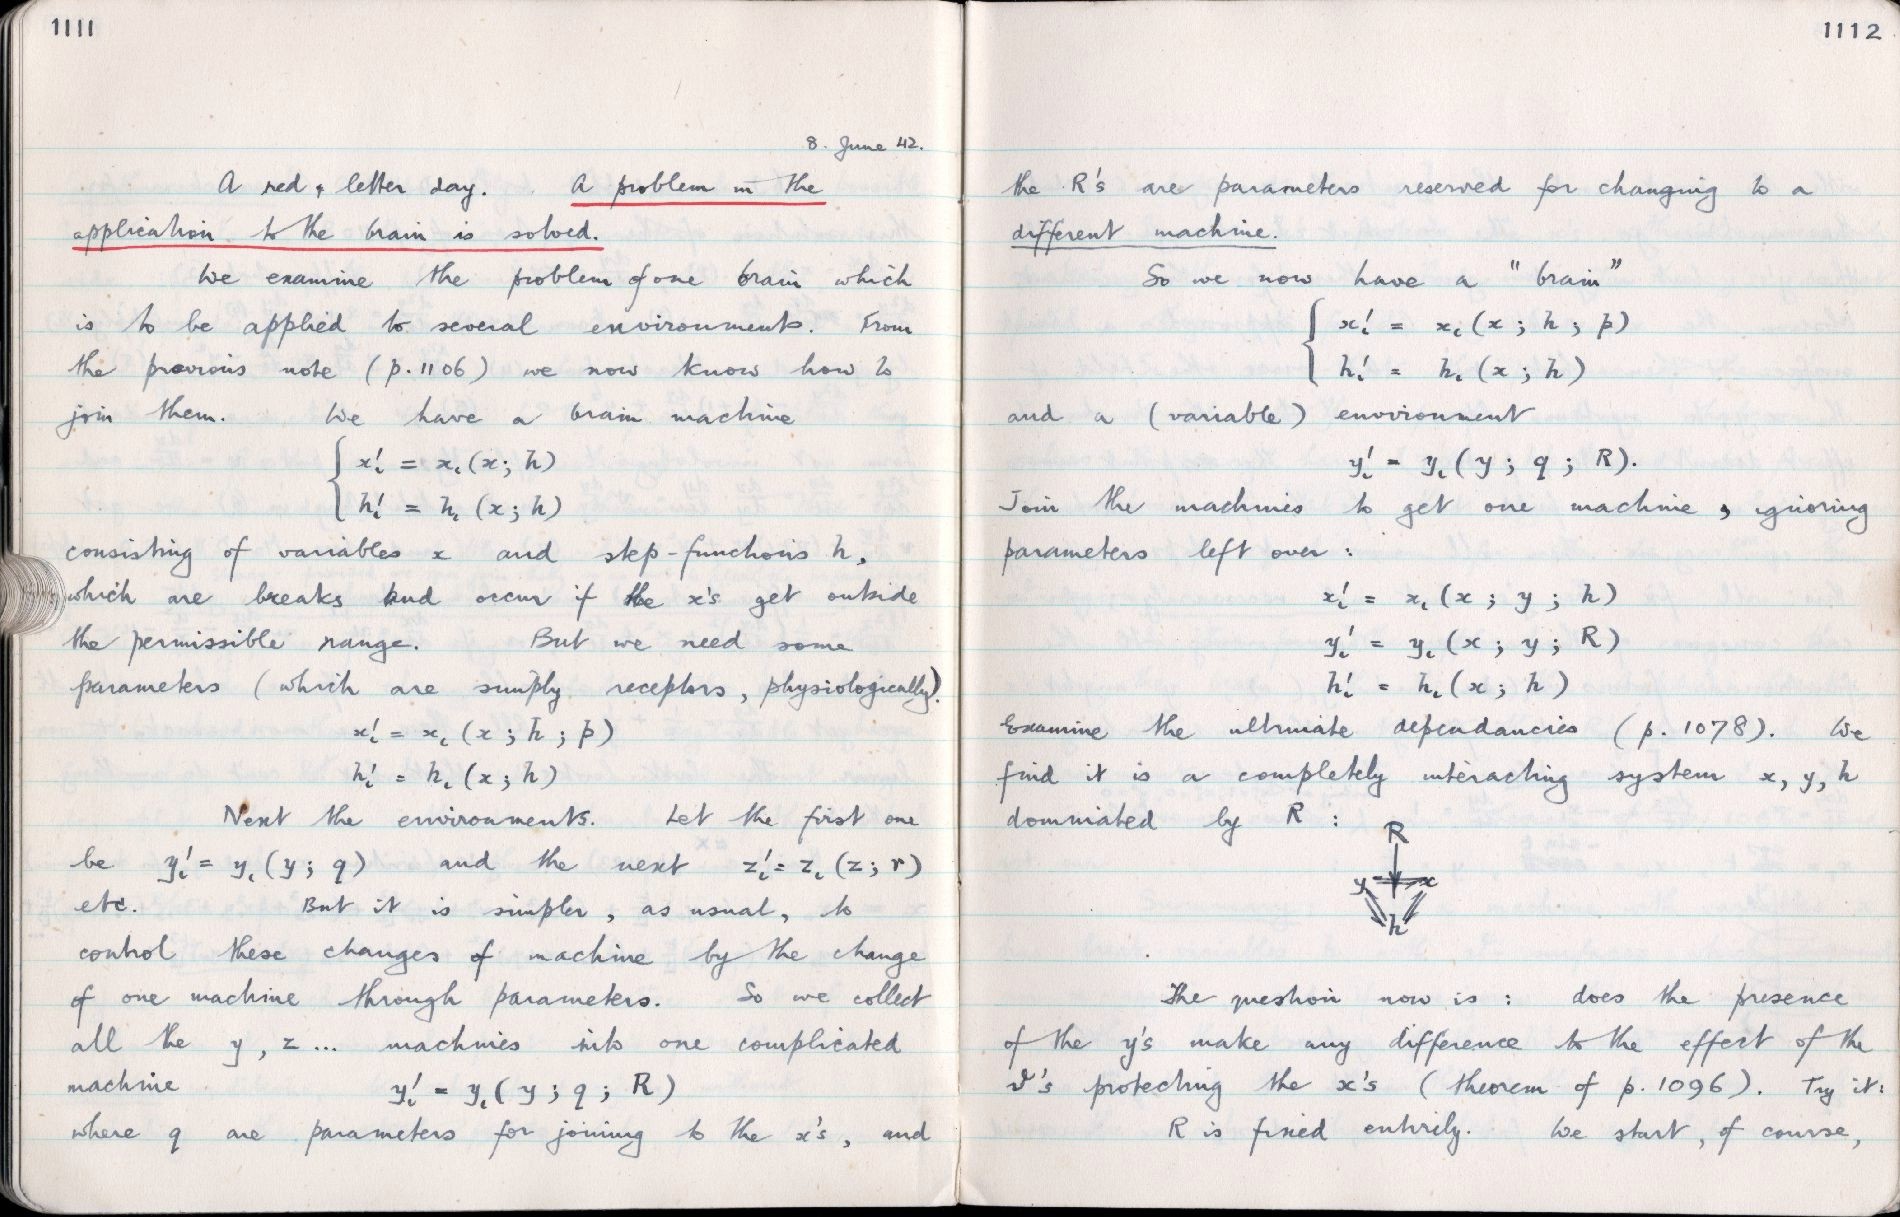 1111
8. June 42.
A red letter day. A problem in the
application to the brain is solved.
We examine the problem of one brain which
is to be applied to several environments. From
the previous note (p.1106) we now know how to
join them. We have a brain machine
x'ᵢ = xᵢ(x; h)
h'ᵢ = hᵢ(x; h)
consisting of variables x and step-functions h,
which are breaks and occur if the x's get outside
the permissible range. But we need some
parameters (which are simply receptors, physiologically).
x'ᵢ = xᵢ(x; h; p)
h'ᵢ = hᵢ(x; h)
Next the environments. Let the first one
be y'ᵢ = yᵢ(y; q) and the next z'ᵢ = zᵢ(z; r)
etc. But it is simpler, as usual, to
control these changes of machine by the change
of one machine through parameters. So we collect
all the y, z ... machines into one complicated
machine y'ᵢ = yᵢ(y; q; R)
where q are parameters for joining to the x's, and
1112
the R's are parameters reserved for changing to a
different machine.
So we now have a "brain"
x'ᵢ = xᵢ(x; h; p)
h'ᵢ = hᵢ(x; h)
and a (variable) environment
y'ᵢ = yᵢ(y; q; R).
Join the machines to get one machine, ignoring
parameters left over:
x'ᵢ = xᵢ(x; y; h)
y'ᵢ = yᵢ(x; y; R)
h'ᵢ = hᵢ(x; h)
Examine the ultimate dependancies (p. 1078). We
find it is a completely interacting system x, y, h
dominated by R:
R
y x
h
The question now is: does the presence
of the y's make any difference to the effect of the
ϑ's protecting the x's (theorem of p. 1096). Try it:
R is fixed entirely. We start, of course,